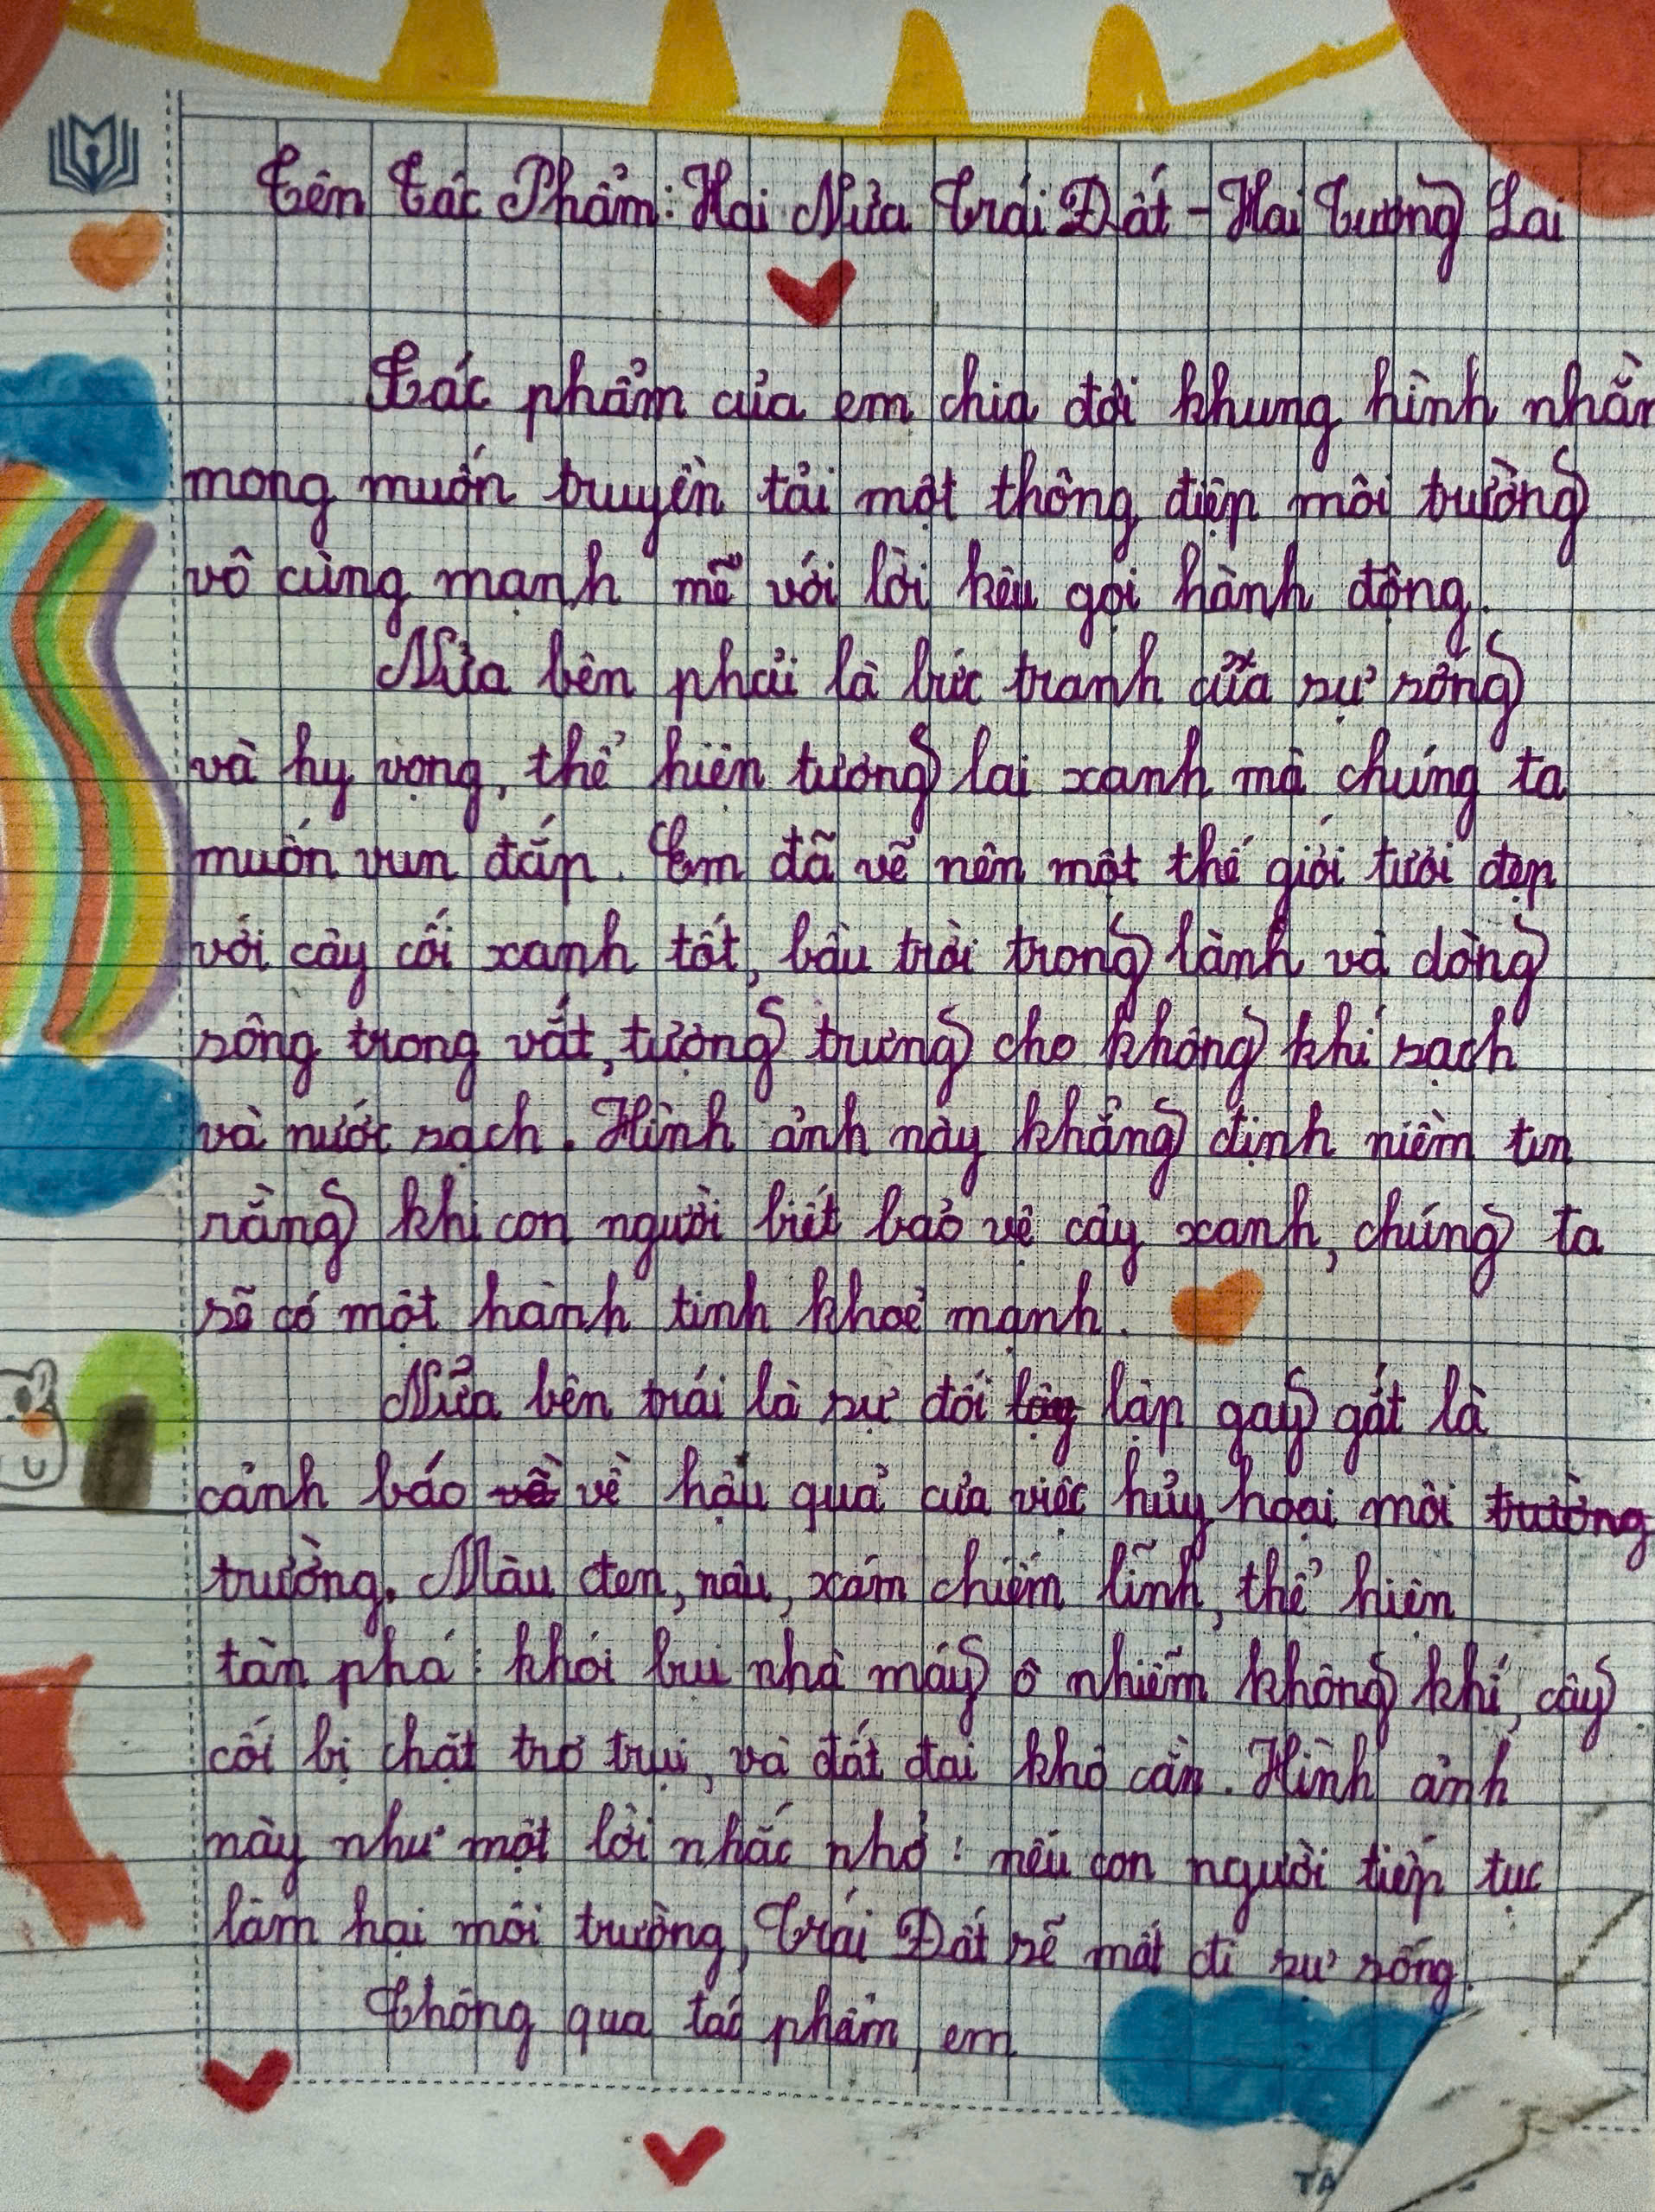 Tên Tác Phẩm: Hai Nửa Trái Đất - Hai Tương Lai
Tác phẩm của em chia đôi khung hình nhằm
mong muốn truyền tải một thông điệp môi trường
vô cùng mạnh mẽ với lời kêu gọi hành động.
Nửa bên phải là bức tranh của sự sống
và hy vọng, thể hiện tương lai xanh mà chúng ta
muốn vun đắp. Em đã vẽ nên một thế giới tươi đẹp
với cây cối xanh tốt, bầu trời trong lành và dòng
sông trong vắt, tượng trưng cho không khí sạch
và nước sạch. Hình ảnh này khẳng định niềm tin
rằng khi con người biết bảo vệ cây xanh, chúng ta
sẽ có một hành tinh khoẻ mạnh.
Nửa bên trái là sự đối lập gay gắt là
cảnh báo về hậu quả của việc hủy hoại môi trường
trường. Màu đen, nâu, xám chiếm lĩnh, thể hiện
tàn phá: khói bụi nhà máy ô nhiễm không khí, cây
cối bị chặt trơ trụi, và đất đai khô cằn. Hình ảnh
này như một lời nhắc nhở: nếu con người tiếp tục
làm hại môi trường, Trái Đất sẽ mất đi sự sống.
Thông qua tác phẩm, em